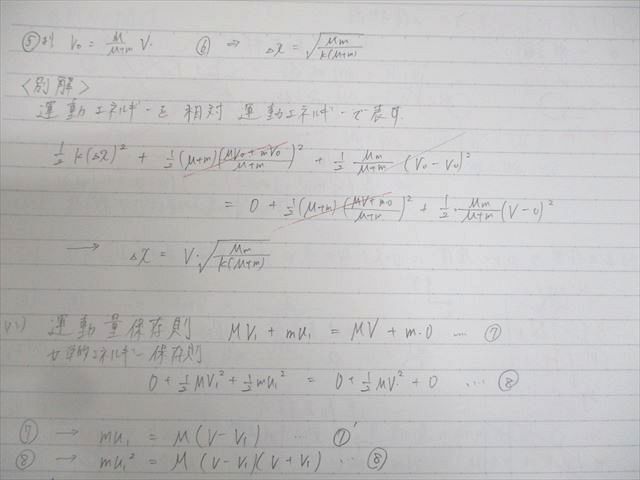 ⑤より V₀ = M/(M+m) V. ⑥ ⇒ Δx = √(Mm/(k(M+m)))
〈別解〉
運動エネルギーを相対運動エネルギーで表す.
1/2 k(Δx)² + 1/2 (M+m)((MV₀+mV₀)/(M+m))² + 1/2 Mm/(M+m) (V₀-V₀)²
= 0 + 1/2 (M+m)((MV+m0)/(M+m))² + 1/2・Mm/(M+m) (V-0)²
→ Δx = V・√(Mm/(k(M+m)))
vi) 運動量保存則 MV₁ + mu₁ = MV + m・0 … ⑦
力学的エネルギー保存則
0 + 1/2 MV₁² + 1/2 mu₁² = 0 + 1/2 MV² + 0 … ⑧
⑦ → mu₁ = M(V-V₁) … ⑦'
⑧ → mu₁² = M(V-V₁)(V+V₁) … ⑧